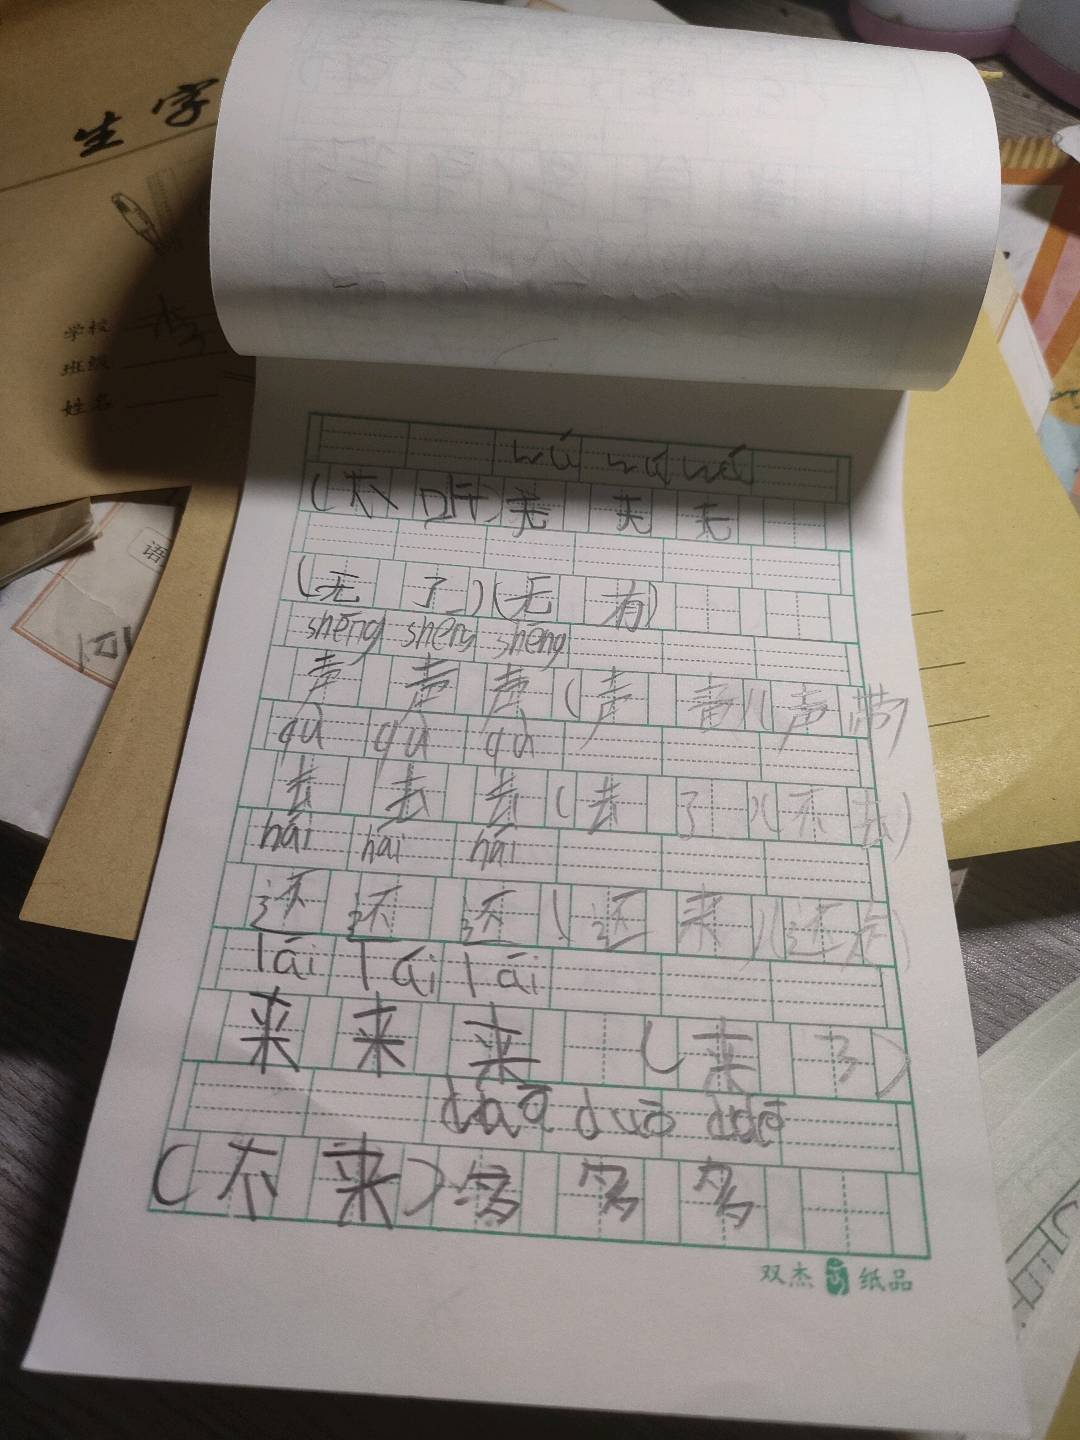 生字
学校
班级
姓名
语
wú wú wú
(不听)无无无
(无了)(无有)
shēng shēng shēng
声声声(声音)(声带)
qù qù qù
去去去(去了)(不去)
hái hái hái
还还还(还来)(还去)
lái lái lái
来来来(来了)
duō duō duō
(不来)多多多
双杰 纸品